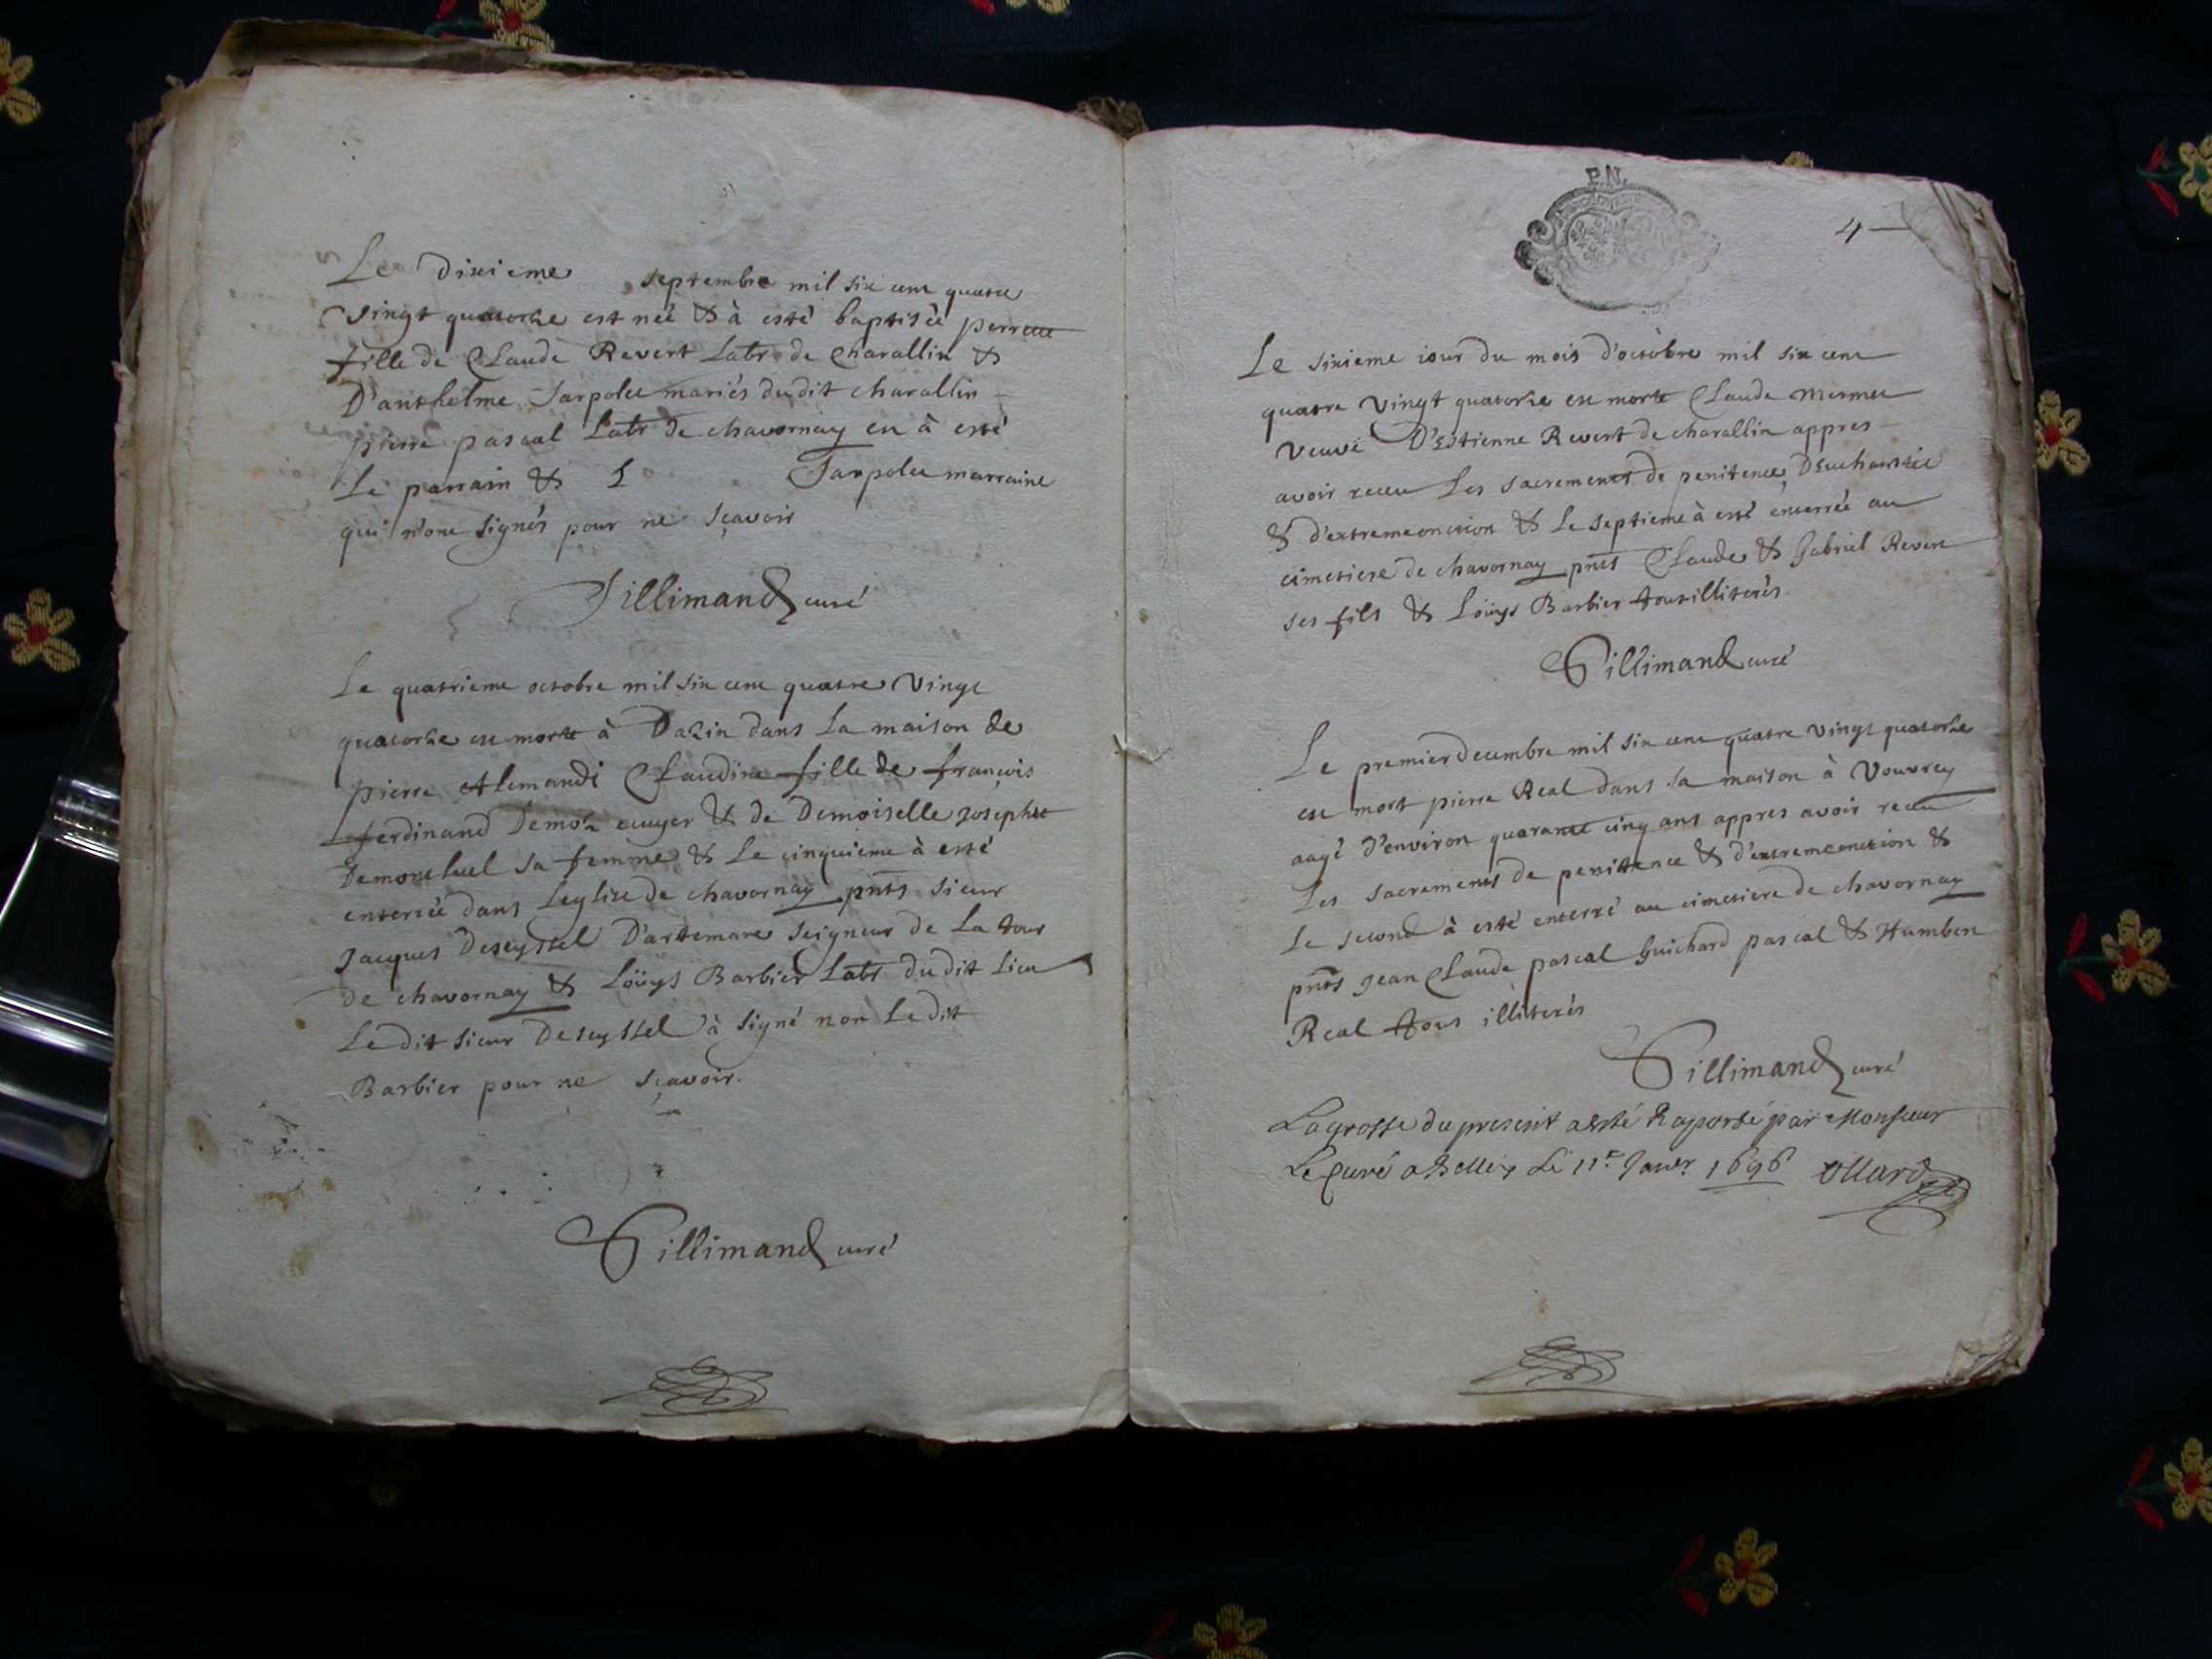 Le dixieme septembre mil six cent quatre
vingt quatorze est neé & à esté baptiseé perrette
fille de Claude Revert Labr de Charallin &
D'anthelme Jarpolee mariés du dit charallin
pierre pascal Labr de chavornay en à esté
Le parrain & L Jarpolee marraine
qui n'ont signés pour ne sçavoir
Tillimand curé
Le quatrieme octobre mil six cent quatre vingt
quatorze est morte à Dazin dans La maison de
pierre Alemandi Claudine fille de françois
ferdinand Demoz ecuyer & de Demoiselle Josephte
Demontluel sa femme & Le cinquieme à esté
enterreé dans Leglise de chavornay pnts sieur
Jacques Deseyssel D'artemare seigneur de La tour
de chavornay & Loüys Barbier Labr du dit Lieu
Le dit sieur Deseyssel à signé non Le dit
Barbier pour ne sçavoir.
Tillimand curé
P.N.
4
Le sixieme iour du mois d'octobre mil six cent
quatre vingt quatorze est morte Claude Mermet
veuve D'Estienne Revert de charallin appres
avoir receu Les sacrements de penitence, D'Eucharistie
& d'extremeonction & Le septieme à esté enterrée au
cimetiere de chavornay pnts Claude & Gabriel Revert
ses fils & Loüys Barbier tous illiterés
Tillimand curé
Le premier decembre mil six cent quatre vingt quatorze
est mort pierre Real dans sa maison à Vouvrey
aagé d'environ quarante cinq ans appres avoir receu
Les sacrements de penitence & d'extremeonction &
Le second à esté enterré au cimetiere de chavornay
pnts Jean Claude pascal Guichard pascal & Humbert
Real tous illiterés
Tillimand curé
La grosse du present a esté Raporté par Monsieur
Le Curé a Belley Le 11e Janer 1696 Ollard